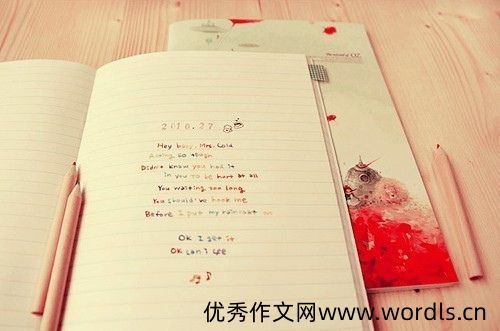 2010.27
Hey baby, Mrs. Cold
Acting so tough
Didn't know you had it
in you to be hurt at all
You waiting too long
You should've hook me
Before I put my raincoat on
OK I get it
OK can I see
优秀作文网www.wordls.cn